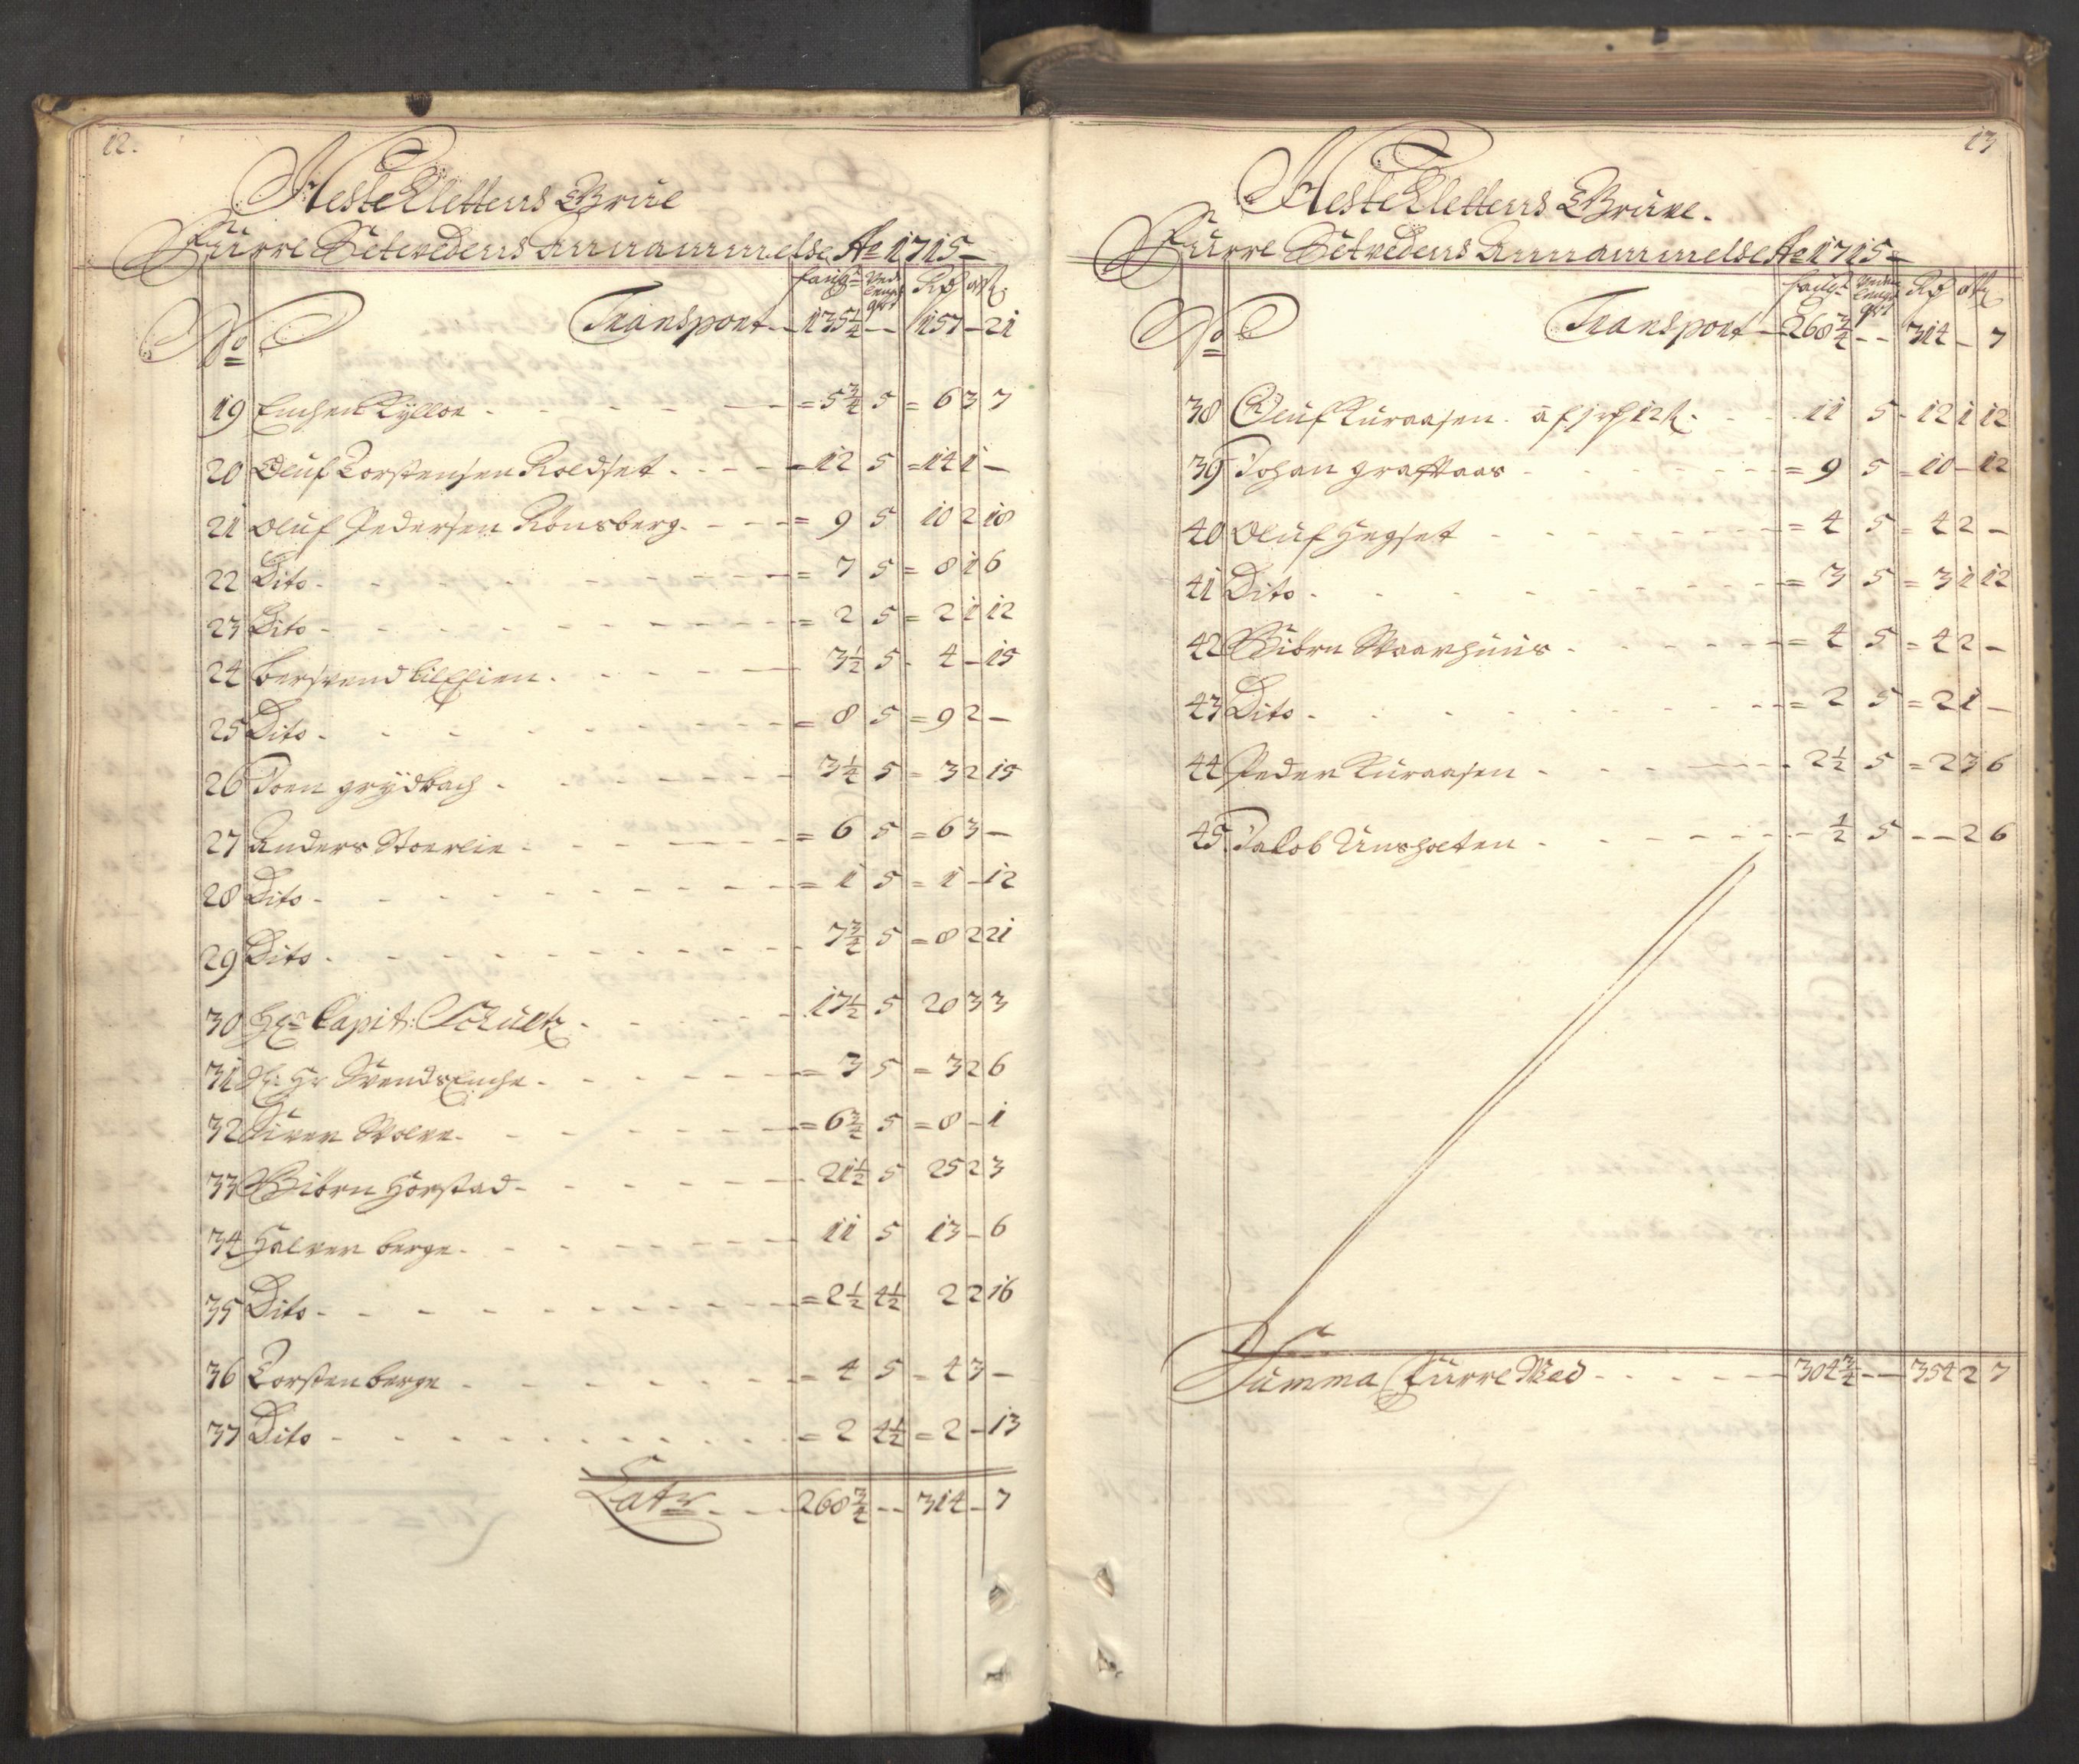 12.
HesteKlettens Grue
Furre Setvedens Annammelse Ao 1715
faug. Ved lengd qvr Rdr ort s
No Transport 135 1/4 - - 157 - 21
19 Erichen Kylloe - = 5 3/4 5 = 6 3 7
20 Oluf Torstensen Koldset - 12 5 = 14 1 -
21 Oluf Pedersen Rönsberg - = 9 5 10 2 18
22 Dito - = 7 5 = 8 1 6
23 Dito - = 2 5 = 2 1 12
24 Berswend Lillelien - 3 1/2 5 - 4 - 15
25 Dito - = 8 5 = 9 2 -
26 Joen grydbach - 3 1/4 5 = 3 2 15
27 Anders Stoerlie - = 6 5 = 6 3 -
28 Dito - = 1 5 = 1 - 12
29 Dito - 7 3/4 5 = 8 2 21
30 Hr Capit: Schultz - 17 1/2 5 20 3 3
31 Hr Svends Enche - = 3 5 = 3 2 6
32 Siver Wolve - = 6 3/4 5 = 8 - 1
33 Biörn Horstad - 21 1/2 5 25 2 3
34 Halver berge - 11 5 13 - 6
35 Dito - = 2 1/2 4 1/2 2 2 16
36 Torsten berge - = 4 5 = 4 3 -
37 Dito - = 2 4 1/2 = 2 - 13
Latr - 268 3/4 - - 314 - 7
13
HesteKlettens Grue.
Furre Setvedens Annammelse Ao 1715
faug. Veden lengd qvr Rdr ort s
No Transport 268 3/4 - - 314 - 7
38 Oluf Kuraasen. - 11 5 - 12 1 12
39 Johan graftaas - = 9 5 = 10 - 12
40 Oluf Hegset - = 4 5 = 4 2 -
41 Dito - = 3 5 = 3 1 12
42 Biörn Skaarhuus - = 4 5 = 4 2 -
43 Dito - = 2 5 = 2 1 -
44 Peder Kuraasen - 2 1/2 5 = 2 3 6
45 Jacob Unsholten - 1/2 5 - - 2 6
Summa Furre Wed - 304 3/4 - - 354 2 7